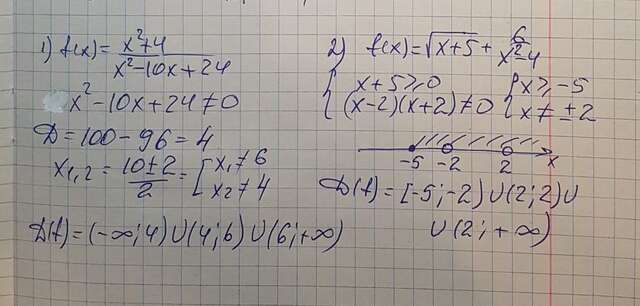 1) f(x) = x²+4 / x²-10x+24
x²-10x+24≠0
D = 100-96 = 4
x₁,₂ = 10±2 / 2 = [ x₁≠6
x₂≠4
D(f) = (-∞; 4) ∪ (4; 6) ∪ (6; +∞)
2) f(x) = √x+5 + 6 / x²-4
{ x+5≥0 { x≥-5
(x-2)(x+2)≠0 x≠±2
-5 -2 2 x
D(f) = [-5; -2) ∪ (2; 2) ∪
∪ (2; +∞)